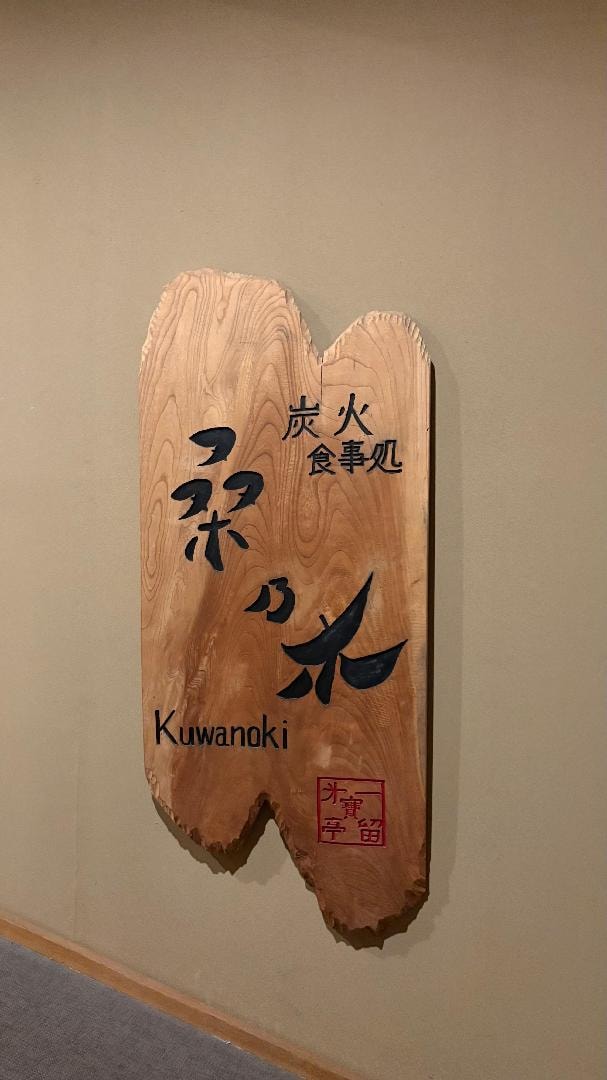 炭火
食事処
桑乃木
Kuwanoki
一留
寶
亭